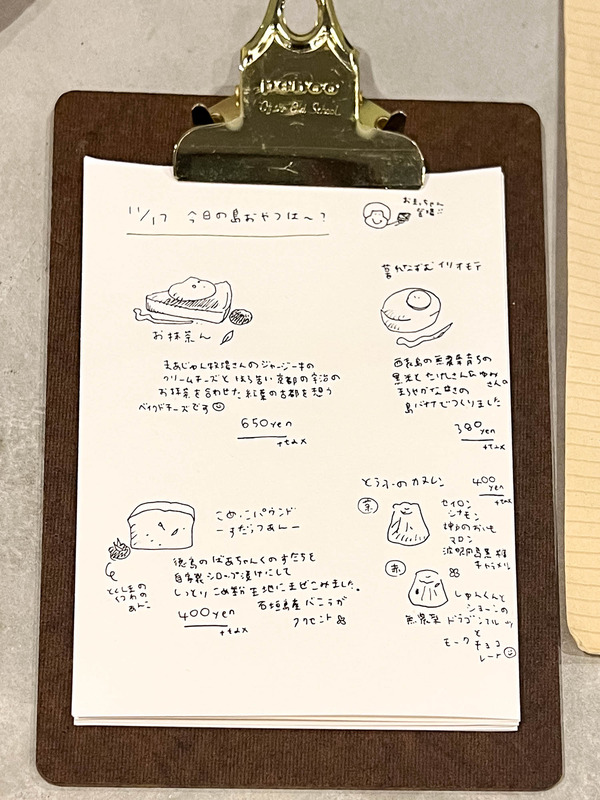 11/17 今日の島おやつは〜?
お抹茶ん
まあじゅん牧場さんのジャージー牛の
クリームチーズと ほろ苦い京都の宇治の
お抹茶を合わせた 紅葉の古都を想う
ベイクドチーズです
650yen
+tax
暮れなずむ イリオモテ
西表島の無農薬育ちの
黒米と たけさん&ゆみ
さんの
まろやかな甘さの
島バナナでつくりました
380yen
+tax
こめっこパウンド
ーすだっつあんー
とくしまの
徳島のばあちゃんくのすだちを
自家製シロップ漬けにして
しっとり こめ粉生地にまぜこみました。
石垣島産 バニラが
アクセント
400yen
+tax
とうふーのカヌレ
400
yen
+tax
茶
セイロン
シナモン
神戸の
マロン
波照間島黒糖
キャラメリ
赤
しゅんくんと
ショーンの
無農薬 ドラゴンフルーツ
と
モークチョコ
レート